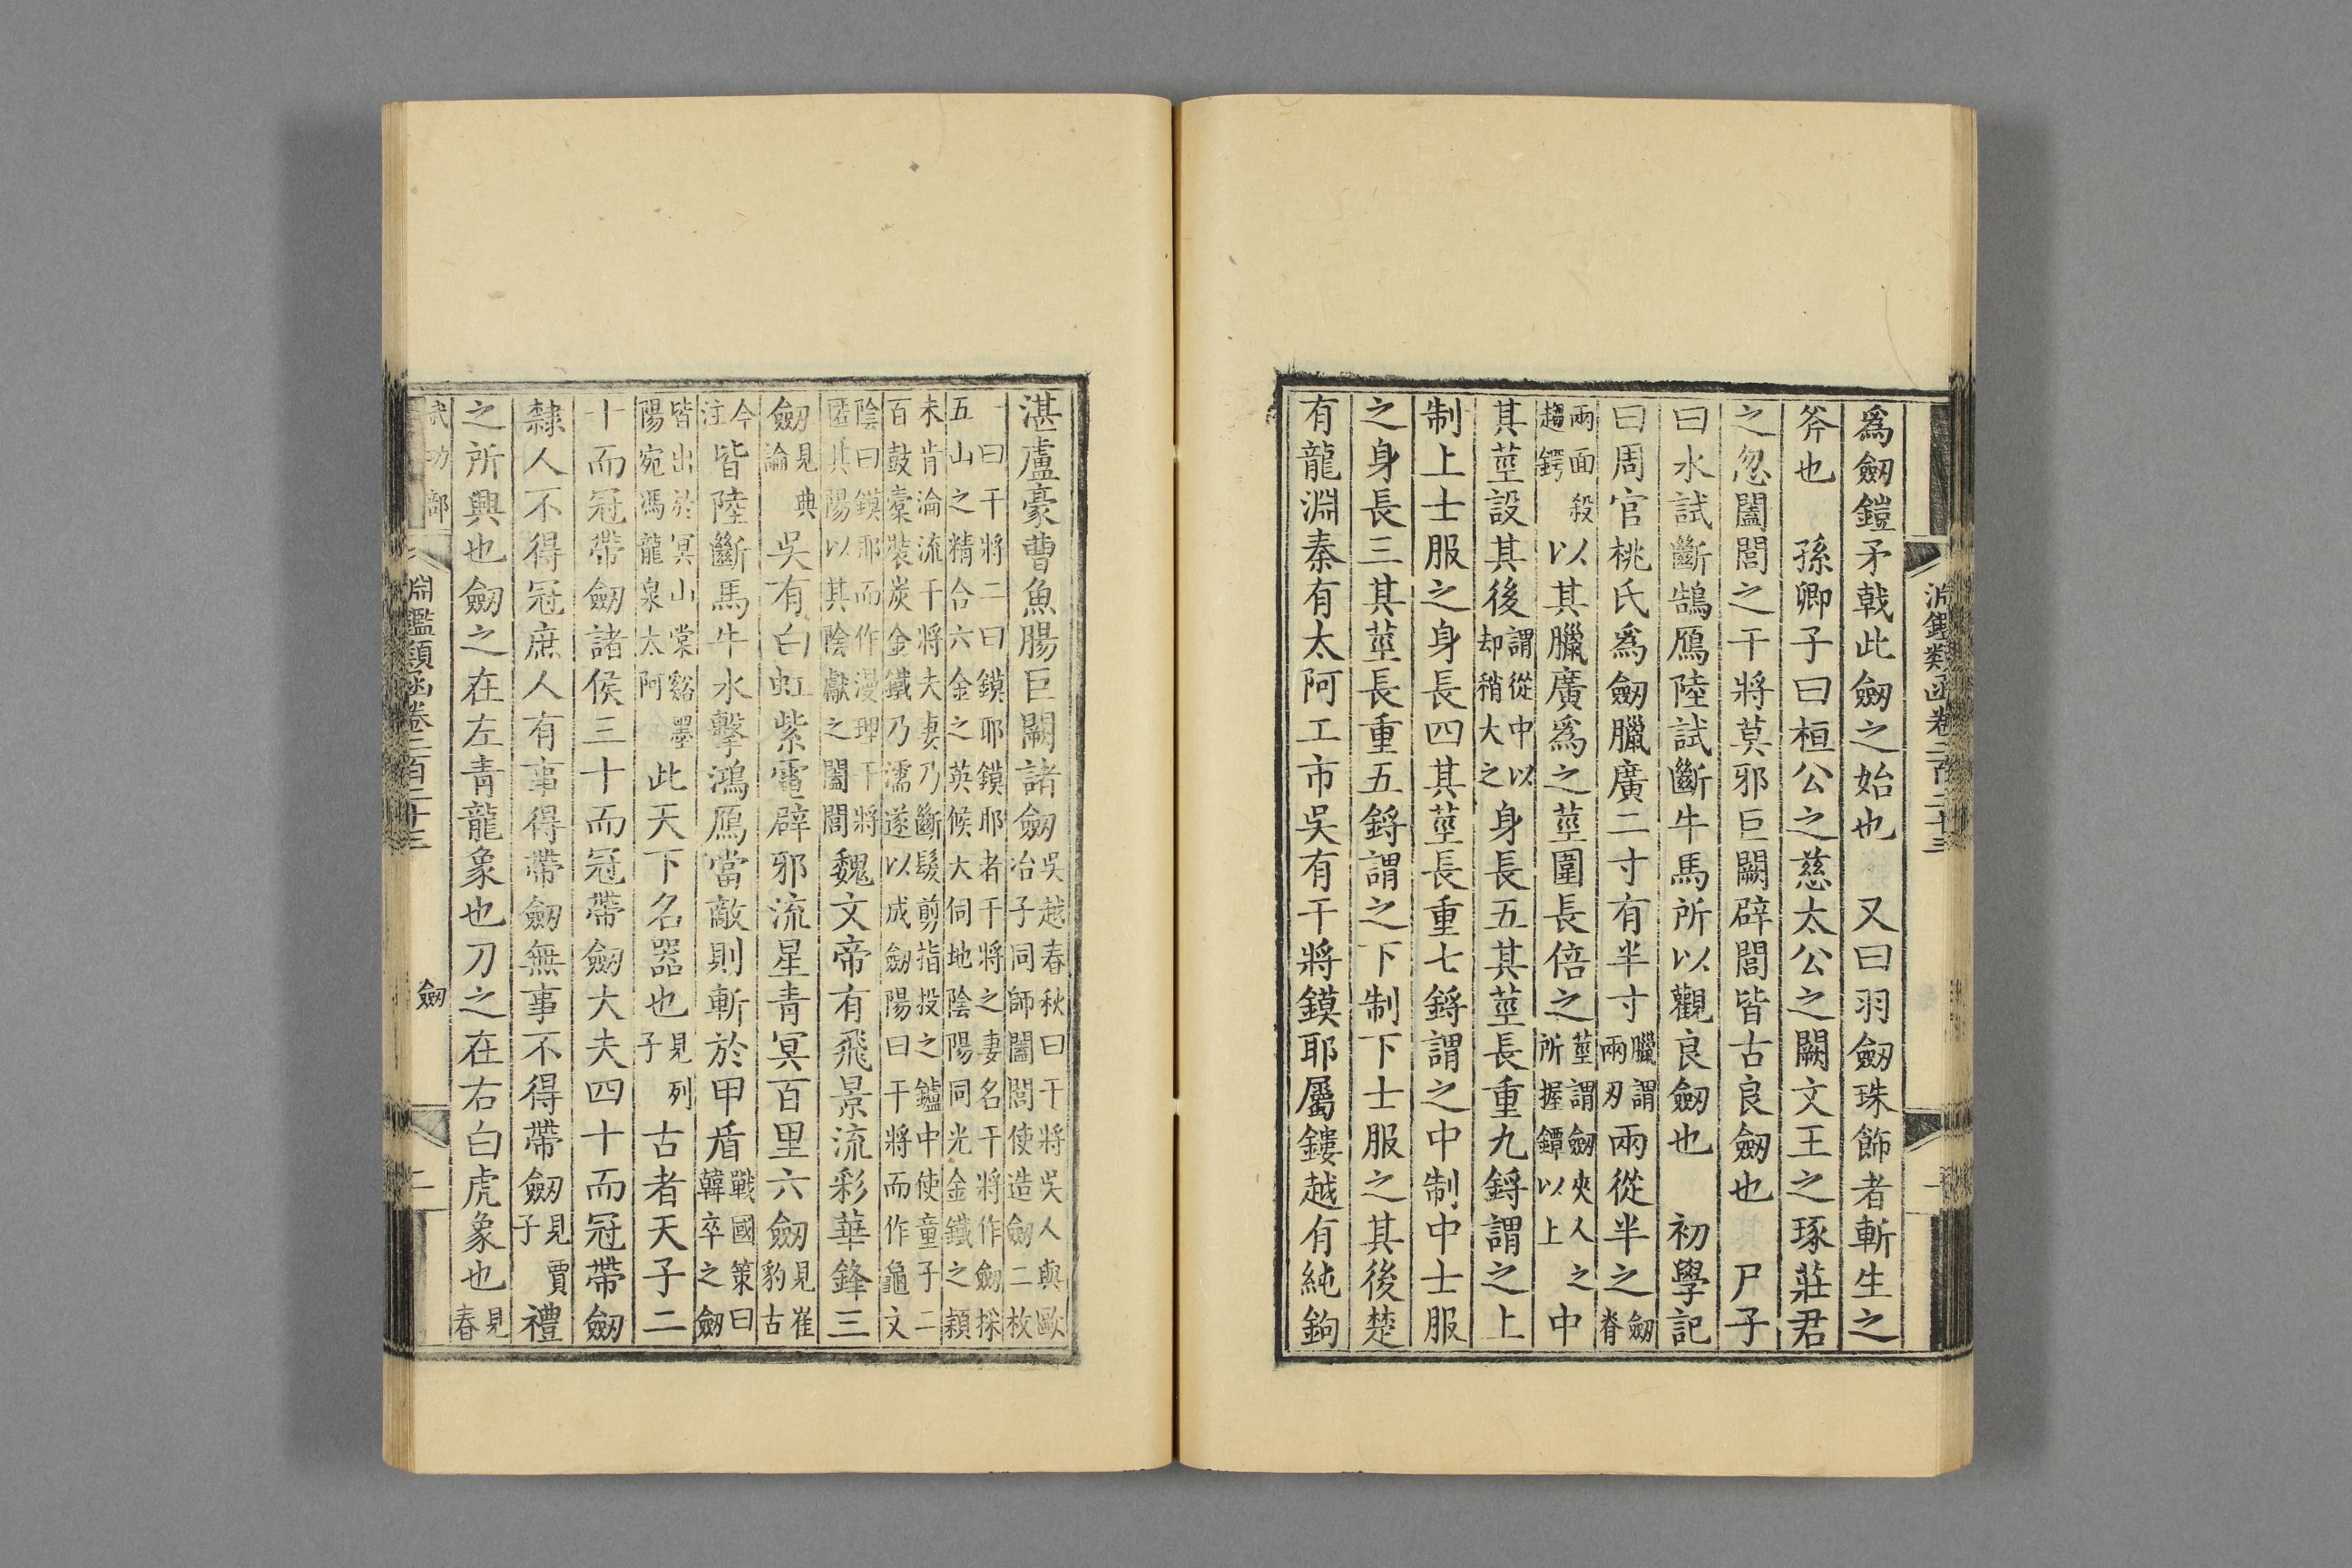 淵鑑類函卷二百二十三
爲劒鎧矛戟此劒之始也　又曰羽劒珠飾者斬生之
斧也　孫卿子曰桓公之慈太公之闕文王之琢莊君
之忽闔閭之干將莫邪巨闕辟閭皆古良劒也　尸子
曰水試斷鵠鴈陸試斷牛馬所以觀良劒也　初學記
曰周官桃氏爲劒臘廣二寸有半寸臘謂兩刃兩從半之劒脊
兩面殺趨鍔以其臘廣爲之莖圍長倍之莖謂劒夾人之所握鐔以上中
其莖設其後謂從中以却稍大之身長五其莖長重九鋝謂之上
制上士服之身長四其莖長重七鋝謂之中制中士服
之身長三其莖長重五鋝謂之下制下士服之其後楚
有龍淵秦有太阿工市吳有干將鏌耶屬鏤越有純鉤
湛盧豪曹魚腸巨闕諸劒吳越春秋曰干將吳人與歐冶子同師闔閭使造劒二枚
一曰干將二曰鏌耶鏌耶者干將之妻名干將作劒採五山之精合六金之英候天伺地陰陽同光金鐵之穎
未肯淪流干將夫妻乃斷髮剪指投之鑪中使童子二百鼓橐裝炭金鐵乃濡遂以成劒陽曰干將而作龜文
陰曰鏌耶而作漫理干將匿其陽以其陰獻之闔閭魏文帝有飛景流彩華鋒三
劒見典論吳有白虹紫電辟邪流星青冥百里六劒見崔豹古
今注皆陸斷馬牛水擊鴻鴈當敵則斬於甲盾戰國策曰韓卒之劒
皆出於冥山棠谿墨陽宛馮龍泉太阿此天下名器也見列子古者天子二
十而冠帶劒諸侯三十而冠帶劒大夫四十而冠帶劒
隸人不得冠庶人有事得帶劒無事不得帶劒見賈子禮
之所興也劒之在左青龍象也刀之在右白虎象也見春
武功部　淵鑑類函卷二百二十三　劒　二